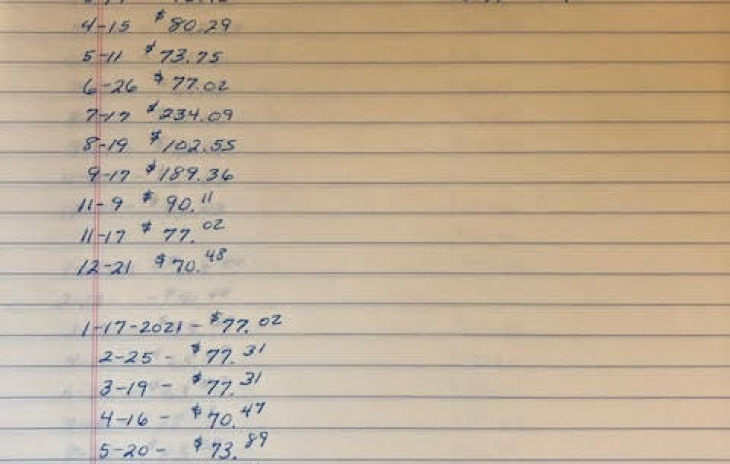 4-15 $80.29
5-11 $73.75
6-26 $77.02
7-17 $234.09
8-19 $102.55
9-17 $189.36
11-9 $90.11
11-17 $77.02
12-21 $70.48
1-17-2021 - $77.02
2-25 - $77.31
3-19 - $77.31
4-16 - $70.47
5-20 - $73.89